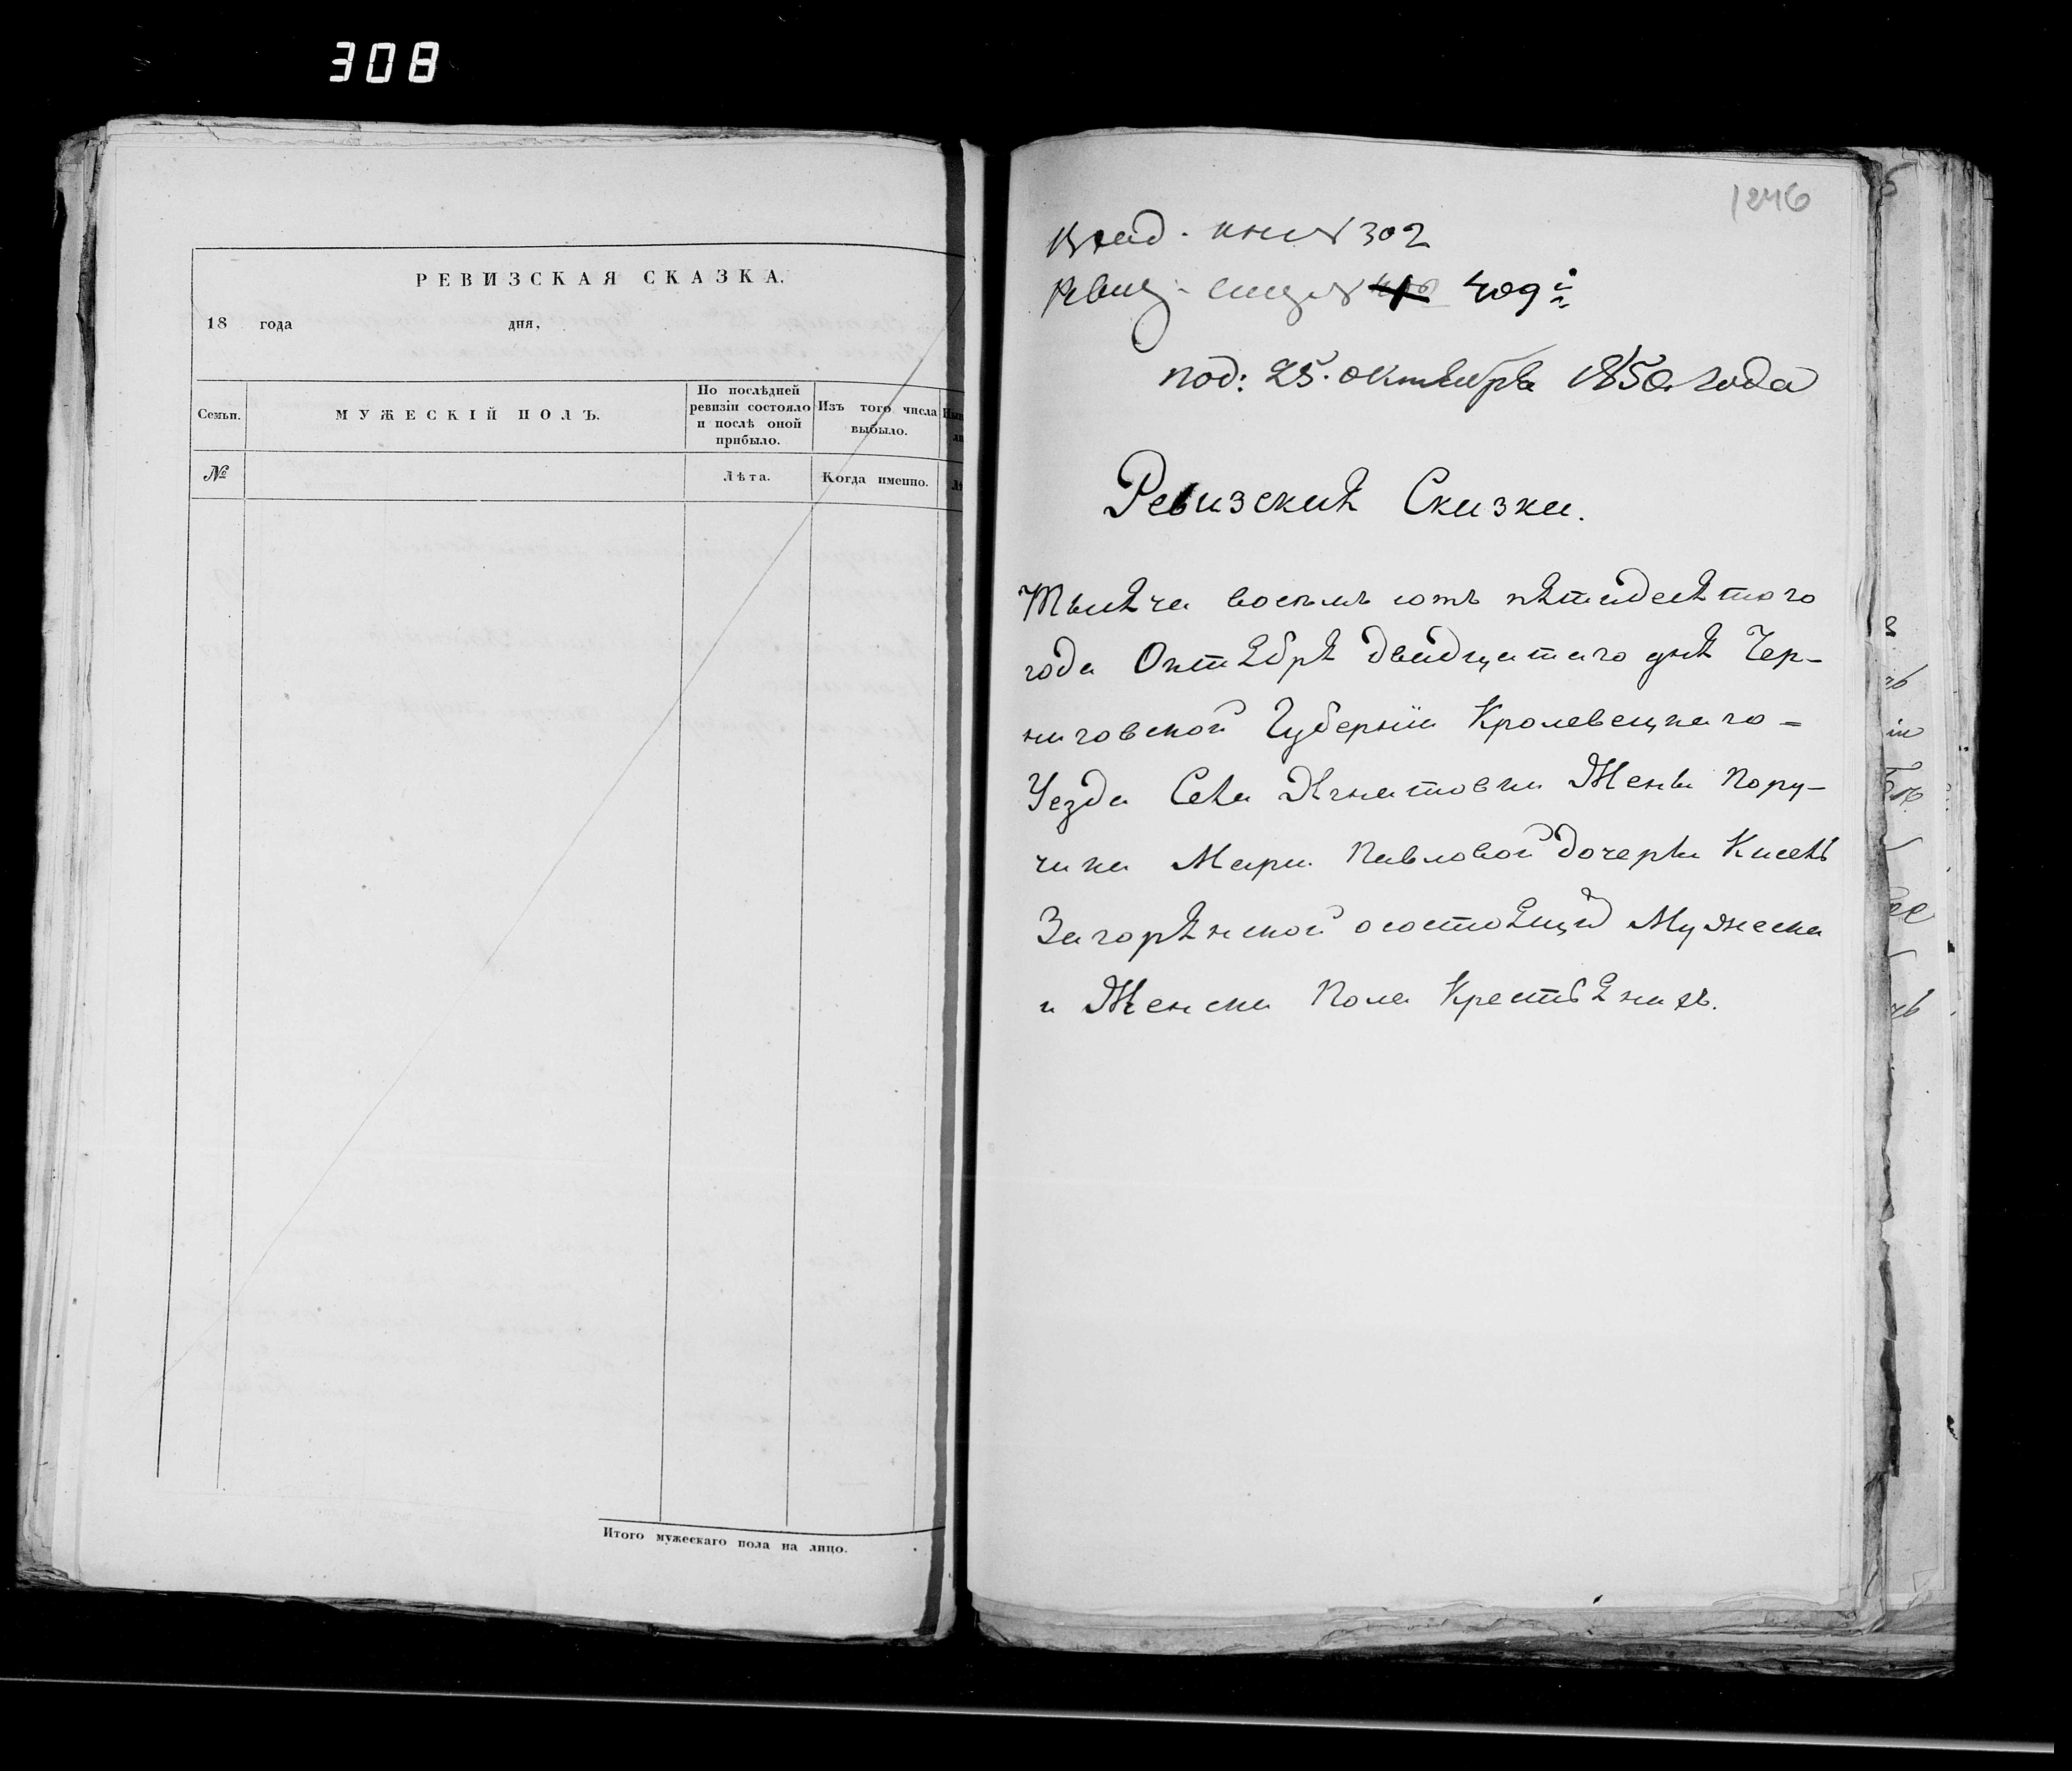 308
РЕВИЗСКАЯ СКАЗКА.
18 года дня,
Семьи.
МУЖЕСКІЙ ПОЛЪ.
По послѣдней ревизіи состояло и послѣ оной прибыло.
Изъ того числа выбыло.
№
Лѣта.
Когда именно.
Итого мужескаго пола на лицо.
1246
302
409
под: 25. октября 1850 года
Ревизския Сказки.
Тысяча восемь сотъ пятидесятого
года Октября двадцатаго дня Чер-
ниговской Губерніи Кролевецкаго-
Уезда Села Игнатовки Жены Пору-
чика Мари Павловой дочери Кисель
Загорянской о состоящи Мужеска
и Женска Пола Крестьянахъ.